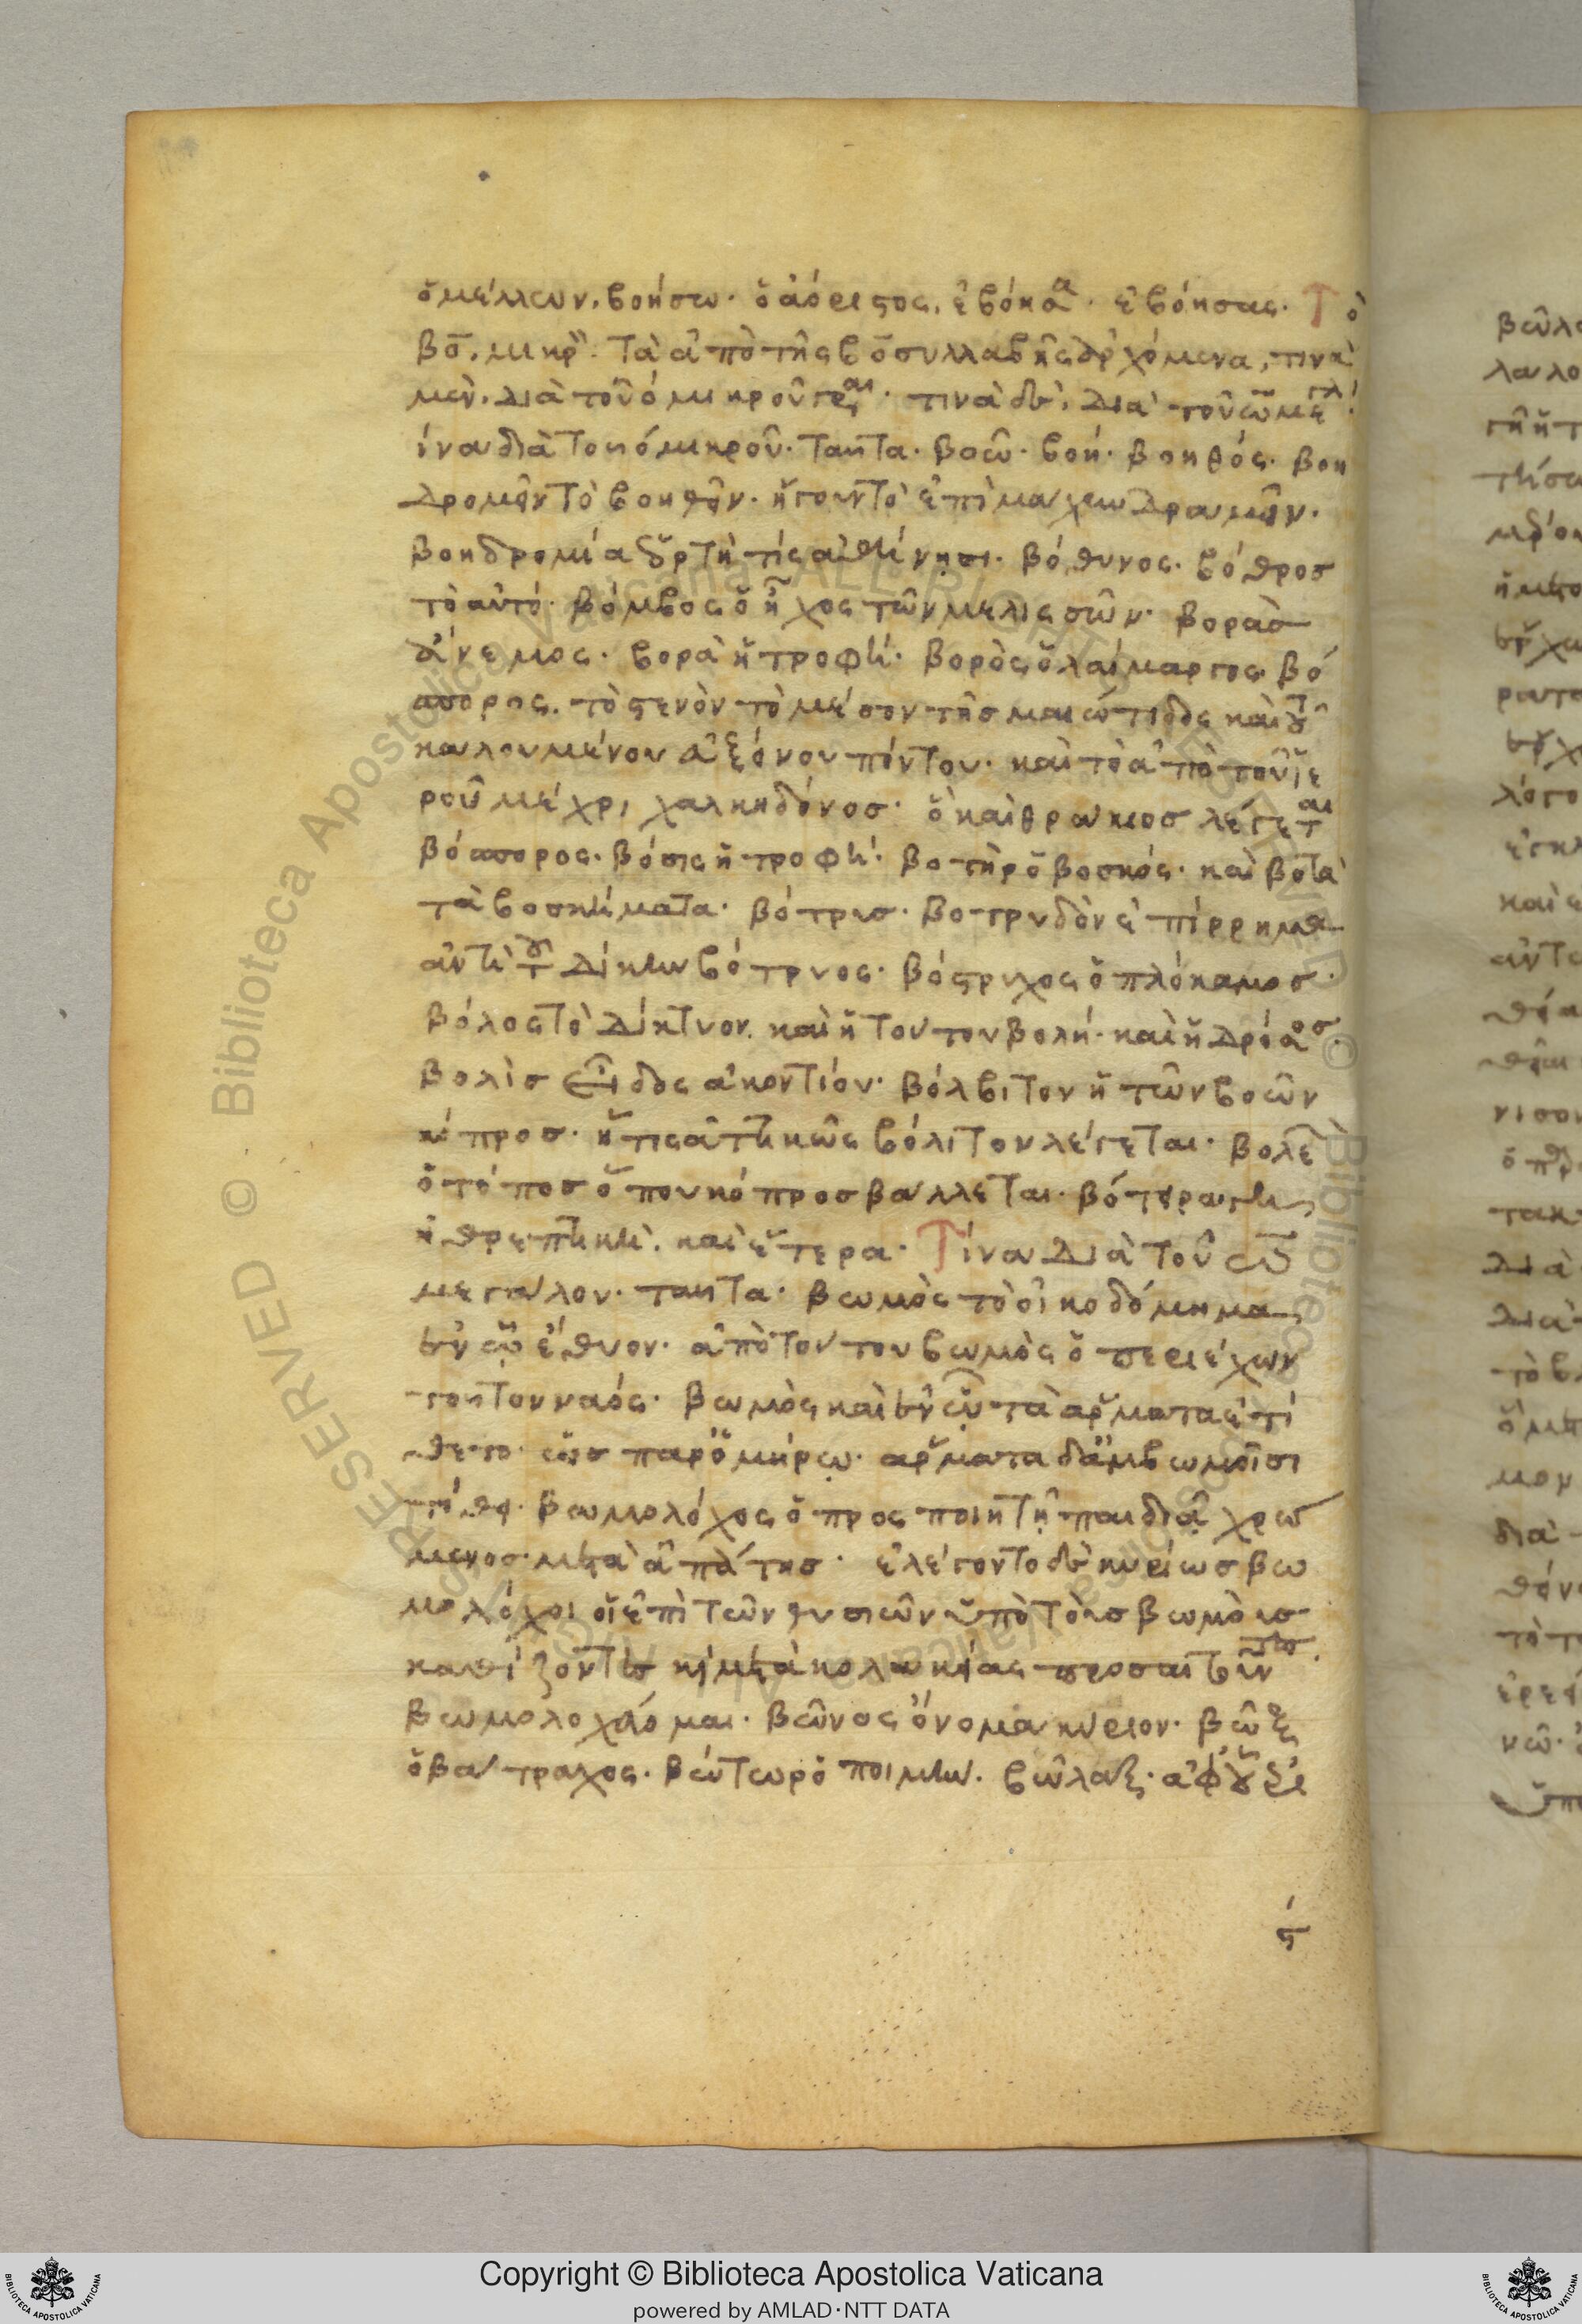 ὁ μέλλων, βοήσω. ὁ ἀόριστος, ἐβόησα. ἐβόησας. Τὸ
βο, μικρὸν. τὰ ἀπὸ τῆς βο συλλαβῆς ἀρχόμενα, τινὰ
μὲν, διὰ τοῦ ὀ μικροῦ γρ. τινὰ δὲ, διὰ τοῦ ω μεγάλ.
τίνα διὰ τοῦ ὀ μικροῦ. ταῦτα. βοῶ. βοή. βοηθός. βοη
δρομεῖν τὸ βοηθεῖν. ἤγουν τὸ ἐπὶ μάχην δραμεῖν.
βοηδρομία ἑορτή τίς ἀθήνησι. βόθυνος. βόθρος
τὸ αὐτό. βόμβος ὁ ἦχος τῶν μελισσῶν. βορᾶς
ἄνεμος. βορὰ ἡ τροφή. βορὸς ὁ λαίμαργος. βό
σπορος. τὸ στενὸν τὸ μέσον τῆς μαιώτιδος καὶ τοῦ
καλουμένου ἀξένου πόντου. καὶ τὸ ἀπὸ τοῦ ἱε
ροῦ μέχρι χαλκηδόνος. ὁ καὶ θράκιος λέγεται
βόσπορος. βόσις ἡ τροφή. βοτὴρ ὁ βοσκός. καὶ βοτὰ
τὰ βοσκήματα. βότρυς. βοτρυδὸν ἐπίρρημα
ἀντὶ τοῦ δίκην βότρυος. βόστρυχος ὁ πλόκαμος.
βόλος τὸ δίκτυον. καὶ ἡ τούτου βολή. καὶ ἡ
βολὶς εἶδος ἀκοντίου. βόλβιτον ἡ τῶν βοῶν
κόπρος. ἥτις ἀττικῶς βόλιτον λέγεται.
ὁ τόπος ὅπου κόπρος βάλλεται.
ἡ θρεπτική. καὶ ἕτερα. Τίνα διὰ τοῦ ω
μεγάλου. ταῦτα. βωμὸς τὸ οἰκοδόμημα
ἐν ᾧ ἔθυον. ἀπὸ τούτου βωμὸς ὁ περιέχων
τοῦτον ναός. βωμὸς καὶ ἐν ᾧ τὰ ἅρματα ἐτί
θετο. ὡς παρ' ὁμήρῳ. ἅρματα δ' ἂμ βωμοῖσι
τίθει. βωμολόχος ὁ προσποιητῇ παιδιᾷ χρώ
μενος μετὰ ἀπάτης. ἐλέγοντο δὲ κυρίως βω
μολόχοι οἱ ἐπὶ τῶν θυσιῶν ὑπὸ τοῖς βωμοῖς
καθίζοντες καὶ μετὰ κολακείας προσαιτοῦντες.
βωμολοχεύομαι. βῶνος ὄνομα κύριον. βῶξ
ὁ βάτραχος. βώτωρ ὁ ποιμήν. βῶλαξ. ἀφ' οὗ ἐξ ἐ
ς